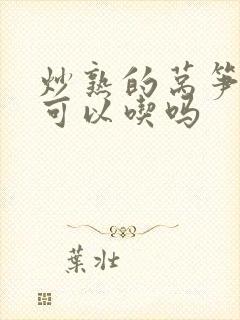 炒熟的莴笋
可以喫吗
葉壮